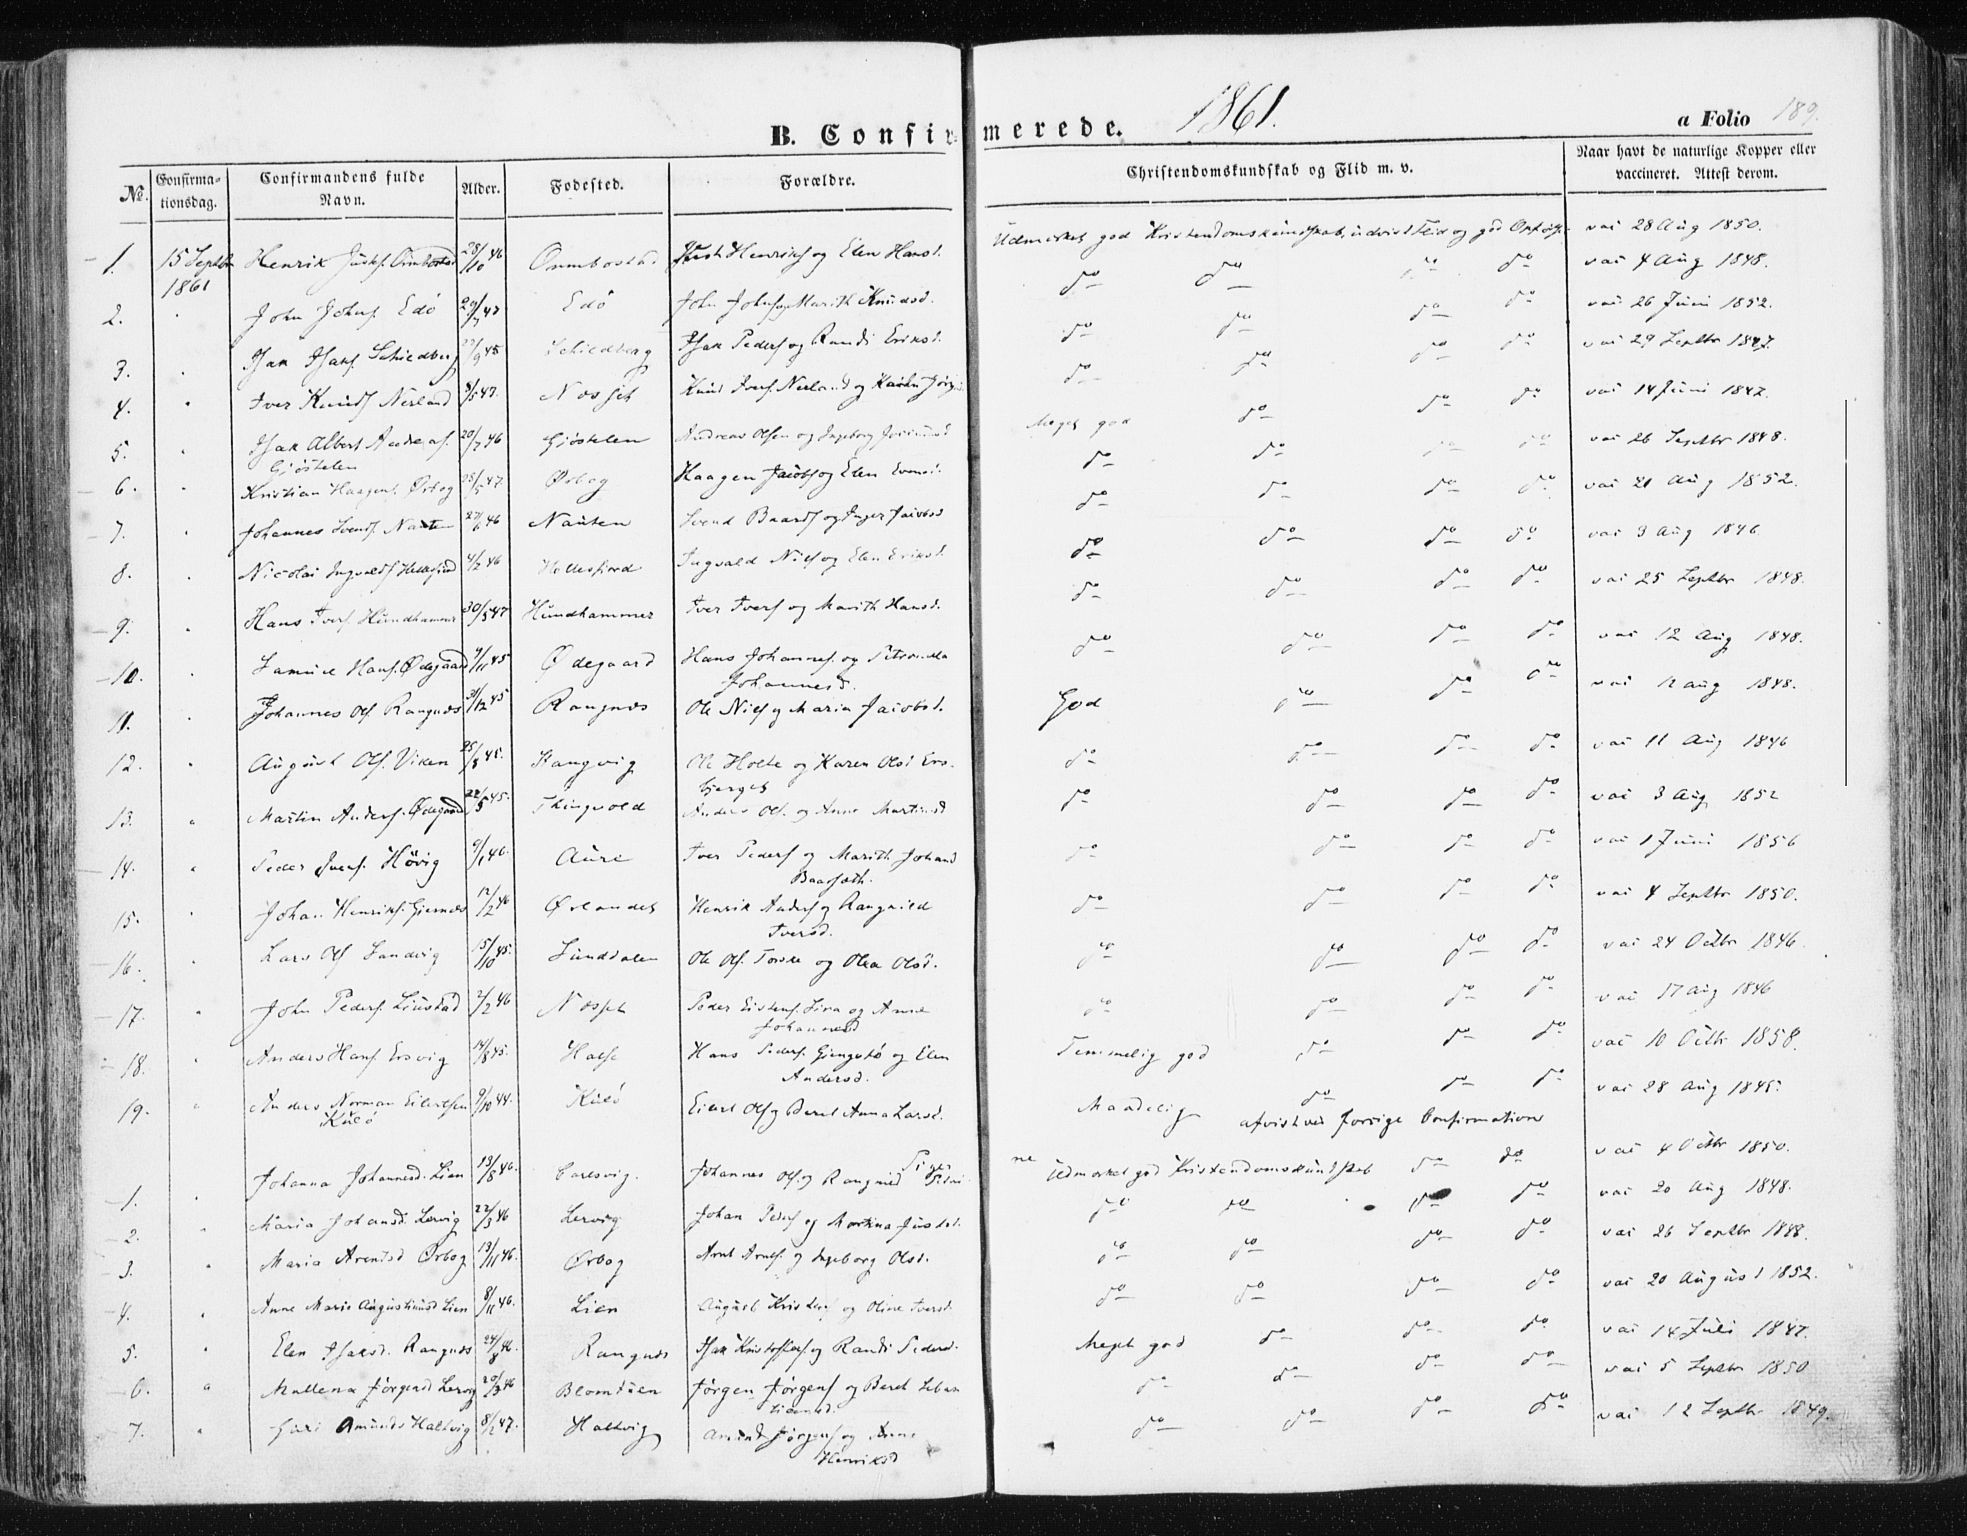 B. Confirmerede. 1861. a Folio 189.
No. Confirmationsdag. Confirmandens fulde Navn. Alder. Fødested. Forældre. Christendomskundskab og Flid m. v. Naar havt de naturlige Kopper eller vaccineret. Attest derom.
1. 15 Septbr 1861 Henrik 28/10 46 Henriks og Elen Hansd. Udmerket god Kristendomskundskab, udvist Flid og god vac 28 Aug 1850.
2. " John Johns. Edö 29/7 47 Edö John Johns og Marith Knudsd. do do do do vac 4 Aug 1848.
3. " Isak Isaks. Schiedberg 45 Schiedberg Isak Peders og Randi Eriksd. do do do do vac 26 Juni 1852.
4. " Iver Knuds Nerland 8/5 47. Nosset Knud Ivers. Nerland og do do do do vac 29 Septbr 1847.
5. " Isak Albert Andreas. Gjöstelen 20/7 46 Gjöstelen Andreas Olsen og Ingeborg Meget god do do do vac 14 Juni 1847.
6. " Kristian Haagens. Ørbog 25/5 47. Ørbog Haagen Jacobs og Elen Evensd. do do do do vac 26 Septbr 1848.
7. " Johannes Svends Nauten 27/6 46 Nauten Svend Baards og Inger Jacobsd do do do do vac 21 Aug 1852.
8. " Nicolai Ingvalds Hellesfiord 4/2 46 Hellesfiord Ingvald Niels og Elen Eriksd. do do do do vac 3 Aug 1846
9. " Hans Ivers Hundhammer 30/5 47 Hundhammer Iver Ivers og Marith Hansd. do do do do vac 25 Septbr 1848.
10. " Samuel Hans. Ødegaard 4/11 45 Ødegaard Hans Johannes. og Petronella Johannesd. do do do do vac 12 Aug 1848.
11. " Johannes Ols Rangnæs 31/12 45 Rangnæs Ole Niels og Maria Jacobsd. God do do do vac 11 aug 1848.
12. " August Ols. Viken 25/8 45. Stangvig Ole Holte og Karen Olsd do do do do vac 11 Aug 1846
13. " Martin Anders. Ødegaard 22/5 45. Thingvold Anders Ols. og Anne Martinsd do do do do vac 3 Aug 1852
14. " Peder Ivers. Hövig 9/1 46. Aure Iver Peders og Marith Johansd Baarseth. do do do do vac 1 Juni 1856
15. " Johan Henriks. Giernæs 12/2 46 Ørlandet Henrik Anders og Rangnild Iversd. do do do do vac 4 Septbr 1850.
16. " Lars Ols Sandvig 15/10 45. Sunddalen Ole Ols. Torske og Olea Olsd. do do do do vac 24 Octbr 1846.
17. " John Peders. Liustad 2/2 46 Nosset Peder og Anne Johannesd do do do do vac 17 Aug 1846
18. " Anders Hans Ersvig 14/8 45. Halse Hans Peders. og Elen Andersd. Temmelig god do do do vac 10 Octbr 1858.
19. " Anders Norman Eilertsen Kulö 9/10 44. Kulö Eilert Ols og Beret Anna Larsd. Maadelig do do do vac 28 Aug 1845
afvist ved forrige Confirmation
Piger
1. " Johanna Johannesd. Lien 13/8 46. Carlsvig. Johannes Ols. og Rangnild Udmerket god Kristendomskundskab do do vac 4 Octbr 1850.
2. " Maria Johansd. Lervig 22/3 46 Lervig Johan Peders og Martina do do do do vac 20 Aug 1848.
3. " Maria Arentsd Ørbog 13/11 46. Ørbog Arnt Arnts. og Ingeborg Olsd. do do do do vac 26 Septbr 1848.
4. " Anne Marie Augustinusd Lien 8/11 46. Lien August Kristens og Oline Iversd. do do do do vac 20 August 1852.
5. " Elen Isaksd. Rangnæs 24/8 46. Rangnæs Isak Kristoffers og Randi Pedersd. Meget god do do do vac 14 Juli 1847.
6. " Mallena Jörgensd Lervig 20/3 46 Blomtüen Jörgen Jörgens og Beret Sebastiansd. do do do do vac 5 Septbr 1850
7. " Guri Amunds Haltvig 8/2 47. Haltvig Amund Jörgens og Anne Henriksd do do do do vac 12 Septbr 1849.